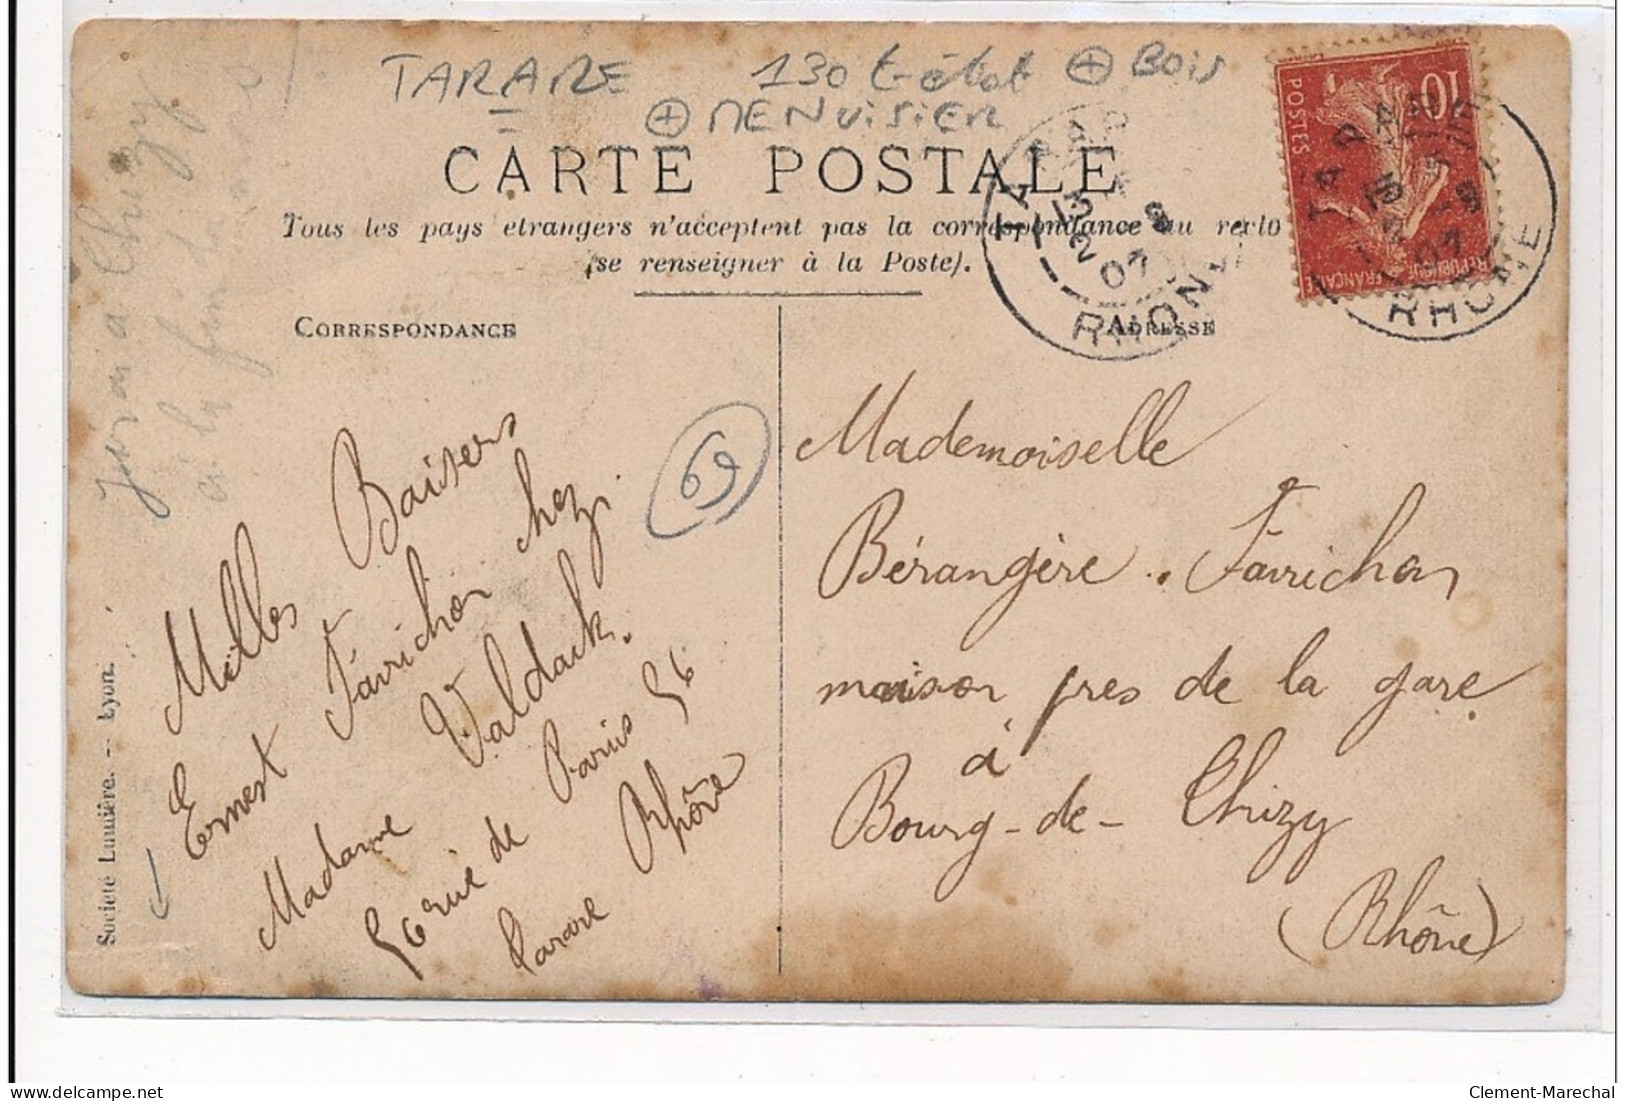 TARARE 130 t-état + BOIS
+ MENUISIER
CARTE POSTALE
Tous les pays etrangers n'acceptent pas la correspondance au recto
(se renseigner à la Poste).
CORRESPONDANCE
ADRESSE
TARARE
13 2 07
RHONE
10
POSTES
REPUBLIQUE FRANÇAISE
TARARE
RHONE
69
Milles Baisers
Ernest Favrichon chez
Madame Valdack.
56 rue de Paris 56
Tarare Rhône
Mademoiselle
Bérangère Favrichon
maison pres de la gare
à
Bourg-de-Thizy
(Rhône)
a Thizy
à la
Societé Lumière. -- Lyon.
Clement-Marechal